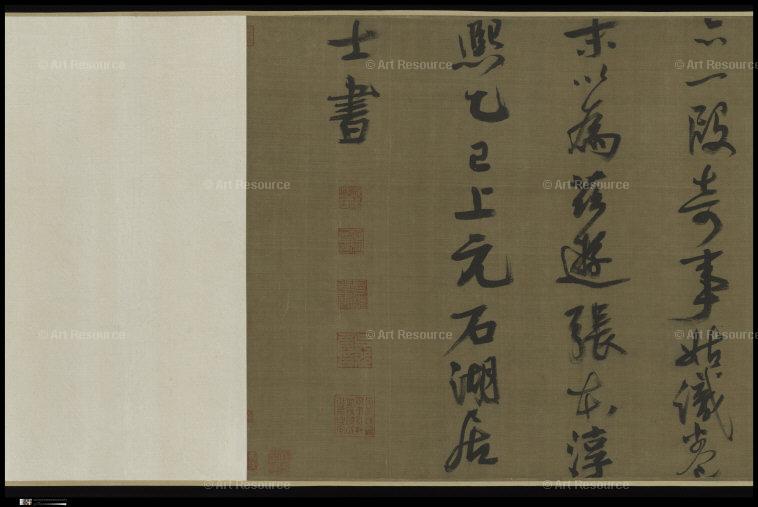 亦一段奇事姑識卷
末以為茲遊張本淳
熙乙巳上元石湖居
士書
© Art Resource
© Art Resource
© Art Resource
© Art Resource
© Art Resource
© Art Resource
© Art Resource
© Art Resource
© Art Resource
© Art Resource